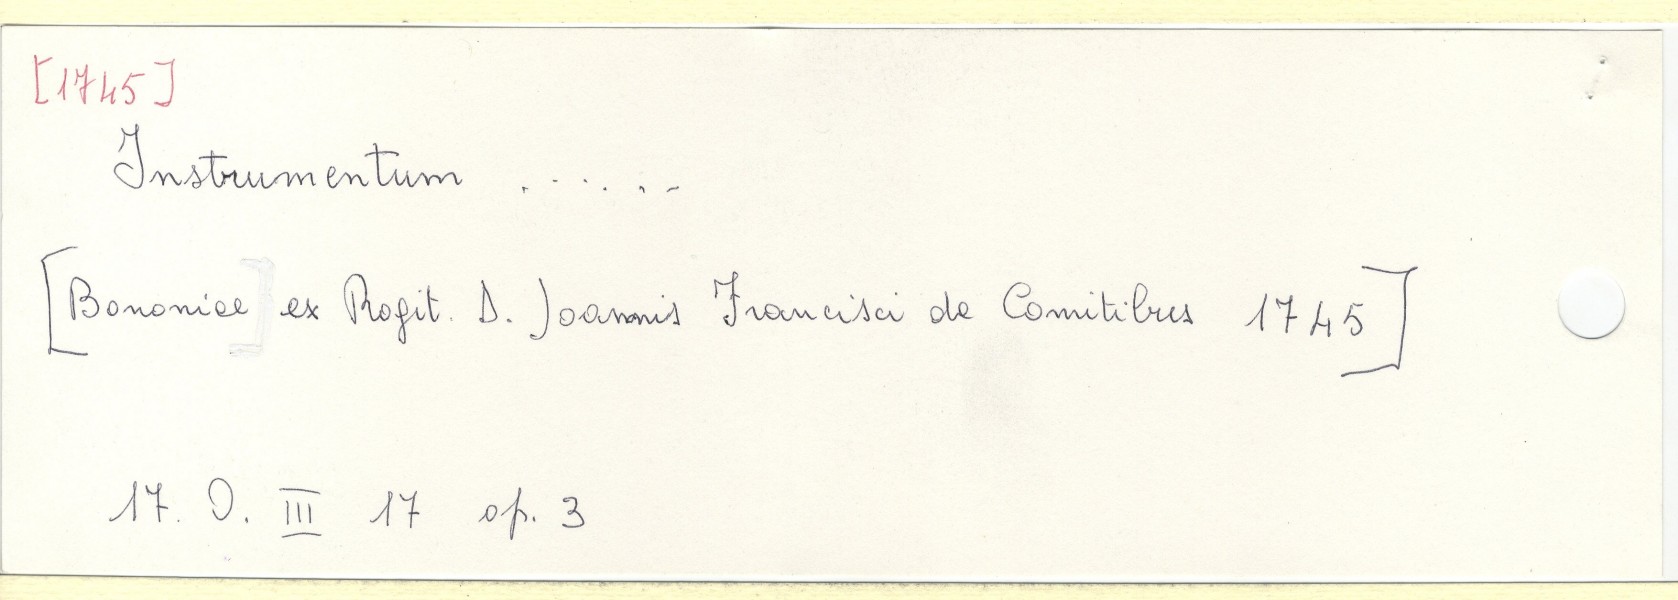 [1745]
Instrumentum . . . . . .
[Bononiae ex Rogit. D. Joannis Francisci de Comitibus 1745]
17. O. III 17 op. 3